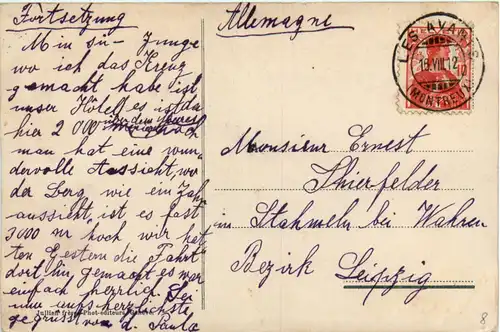 Fortsetzung
Allemagne
LES AVANTS
16.VIII.12
(MONTREUX)
Mein sü- Junge
wo ich das Kreuz
gemacht habe ist
unser Hôtel es ist da
über dem Meeres
hier 2 000 hoch
man hat eine wun-
dervolle Aussicht, wo
der Berg wie ein Zahn
aussieht, ist es fast
3000 m hoch wir hat-
ten Gestern die Fahrt
dorthin gemacht es war
einfach herrlich. Sei
nun aufs herzlichste
gegrüsst von d. Paula
Monsieur Ernest
Thierfelder
in Stahmeln bei Wahren
Bezirk Leipzig
Jullien frères Phot-éditeurs
8